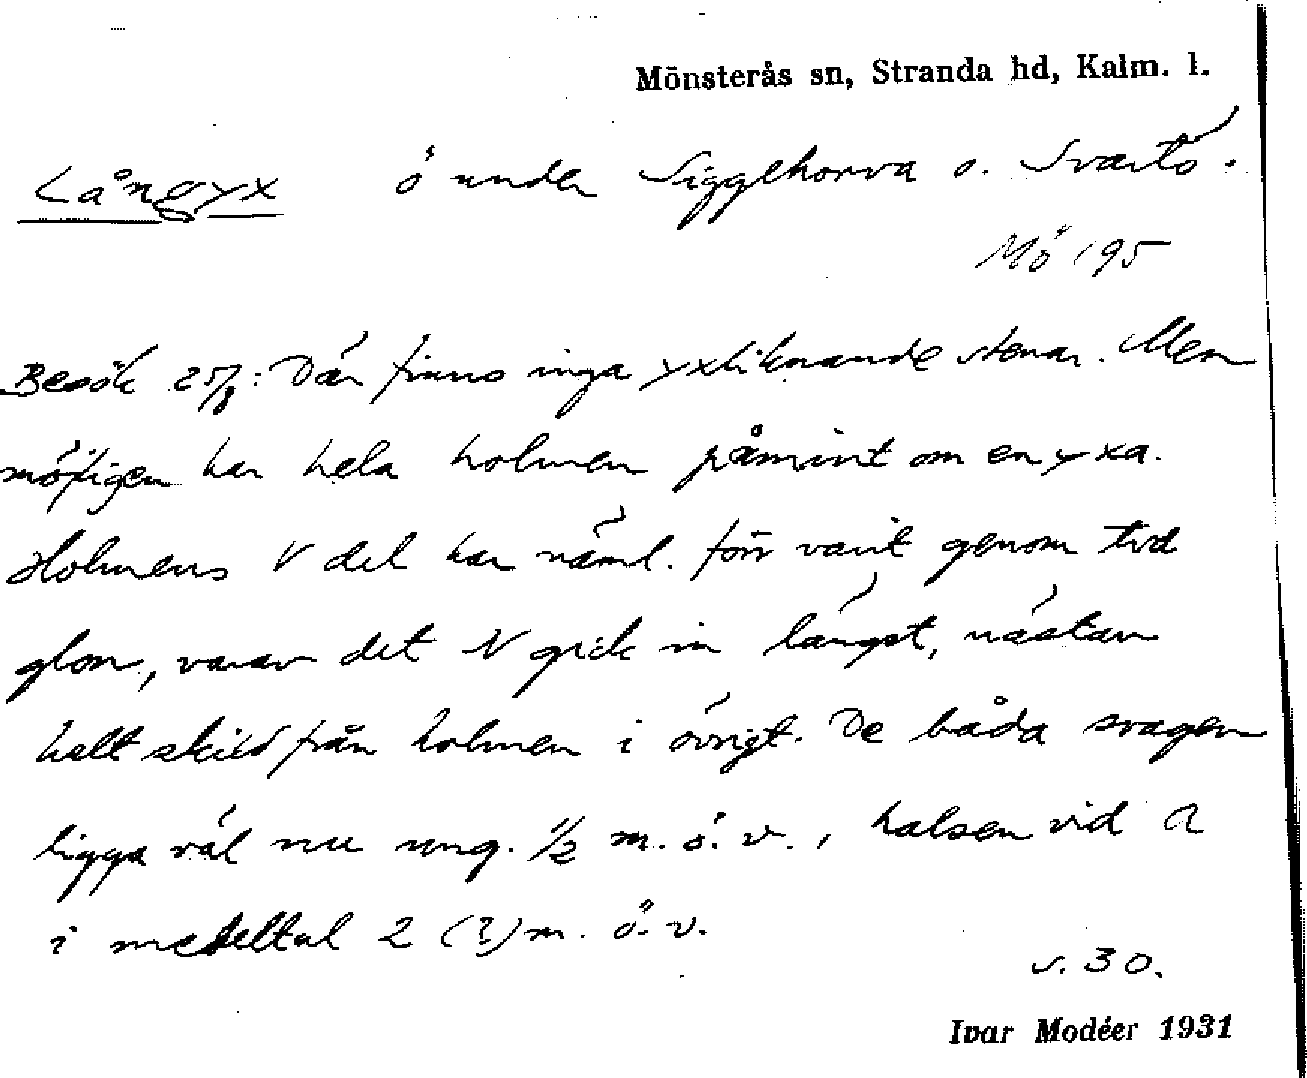 Mönsterås sn, Stranda hd, Kalm. l.
Långyx ö under Siggehorva o. Svartö.
Mö 195
Besök 25/8: Där finns inga yxliknande stenar. Men
möjligen har hela holmen påmint om en yxa.
Holmens V del har näml. förr varit genom två
glon, varav det N gick in längst, nästan
helt skild från holmen i övrigt. De båda svagen
ligga väl nu ung. 1/2 m. ö. v., halsen vid a
i medeltal 2 (?) m. ö. v.
s. 30.
Ivar Modéer 1931